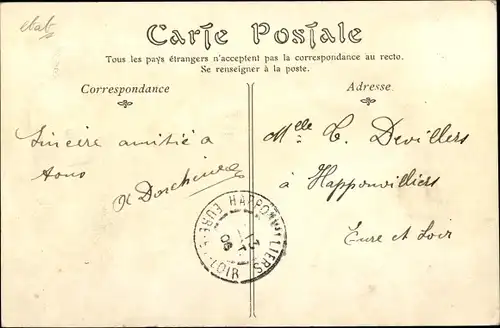 etab
Carte Postale
Tous les pays étrangers n'acceptent pas la correspondance au recto.
Se renseigner à la poste.
Correspondance
Sincère amitié a
tous
Adresse
Melle C. Devillers
à Happonvilliers
Eure et Loir
HAPPONVILLIERS
EURE-ET-LOIR
06